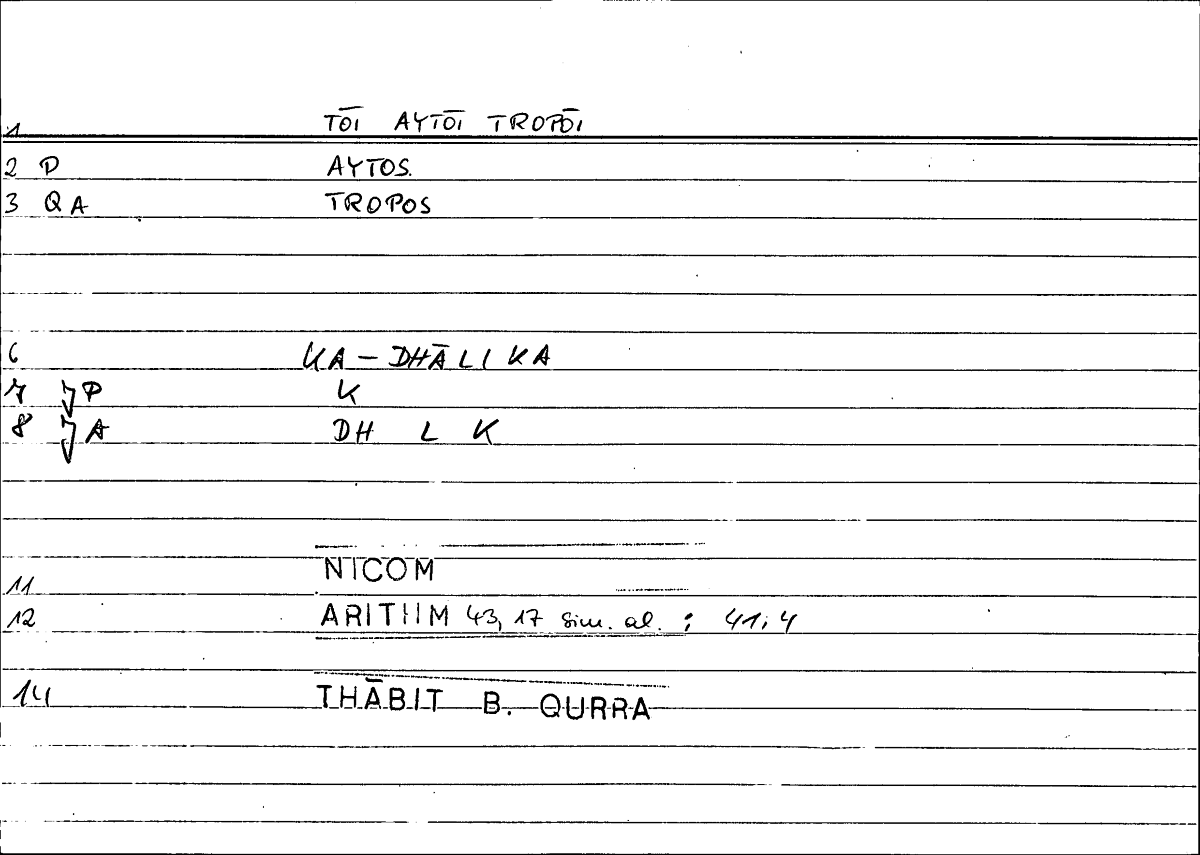 1 TŌI AYTŌI TROPŌI
2 P AYTOS.
3 QA TROPOS
6 KA-DHĀLIKA
7 P K
8 A DH L K
11 NICOM
12 ARITHM 43,17 sim. al. ; 41,4
14 THĀBIT B. QURRA